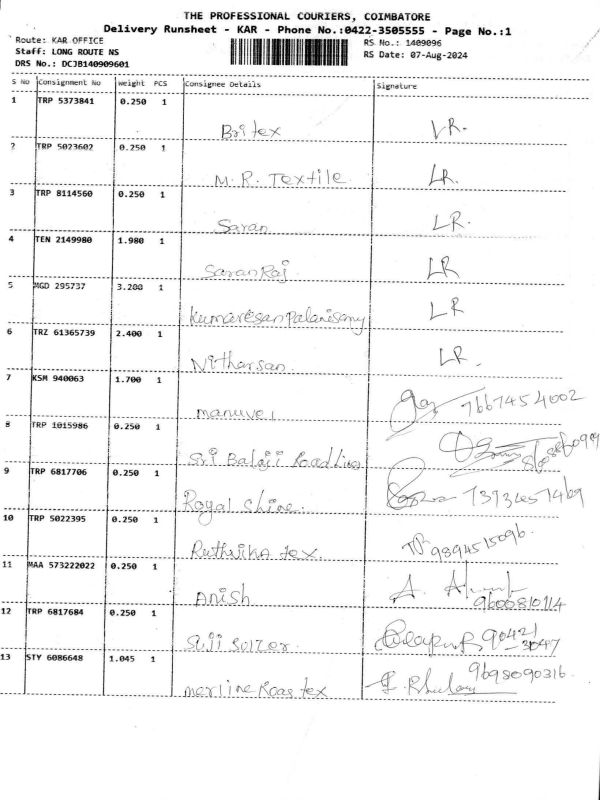 THE PROFESSIONAL COURIERS, COIMBATORE
Delivery Runsheet - KAR - Phone No.:0422-3505555 - Page No.:1
Route: KAR OFFICE
Staff: LONG ROUTE NS
DRS No.: DCJB140909601
RS No.: 1409096
RS Date: 07-Aug-2024
S No Consignment No Weight PCS Consignee Details Signature
1 TRP 5373841 0.250 1 Britex LR.
2 TRP 5023602 0.250 1 M.R. Textile LR.
3 TRP 8114560 0.250 1 Saran LR.
4 TEN 2149980 1.980 1 Saran Raj LR
5 MGD 295737 3.200 1 kumaresan palanisamy LR
6 TRZ 61365739 2.400 1 Nitharsan LR.
7 KSM 940063 1.700 1 manuvel 7667454002
8 TRP 1015986 0.250 1 Sri Balaji Roadlines
9 TRP 6817706 0.250 1 Royal Shine. 73734657469
10 TRP 5022395 0.250 1 Ruthvika tex. 9894515096.
11 MAA 573222022 0.250 1 Anish A. 9600810114
12 TRP 6817684 0.250 1 Suji Sulzer. 90421 3047
13 STY 6086648 1.045 1 tex 9698090316.